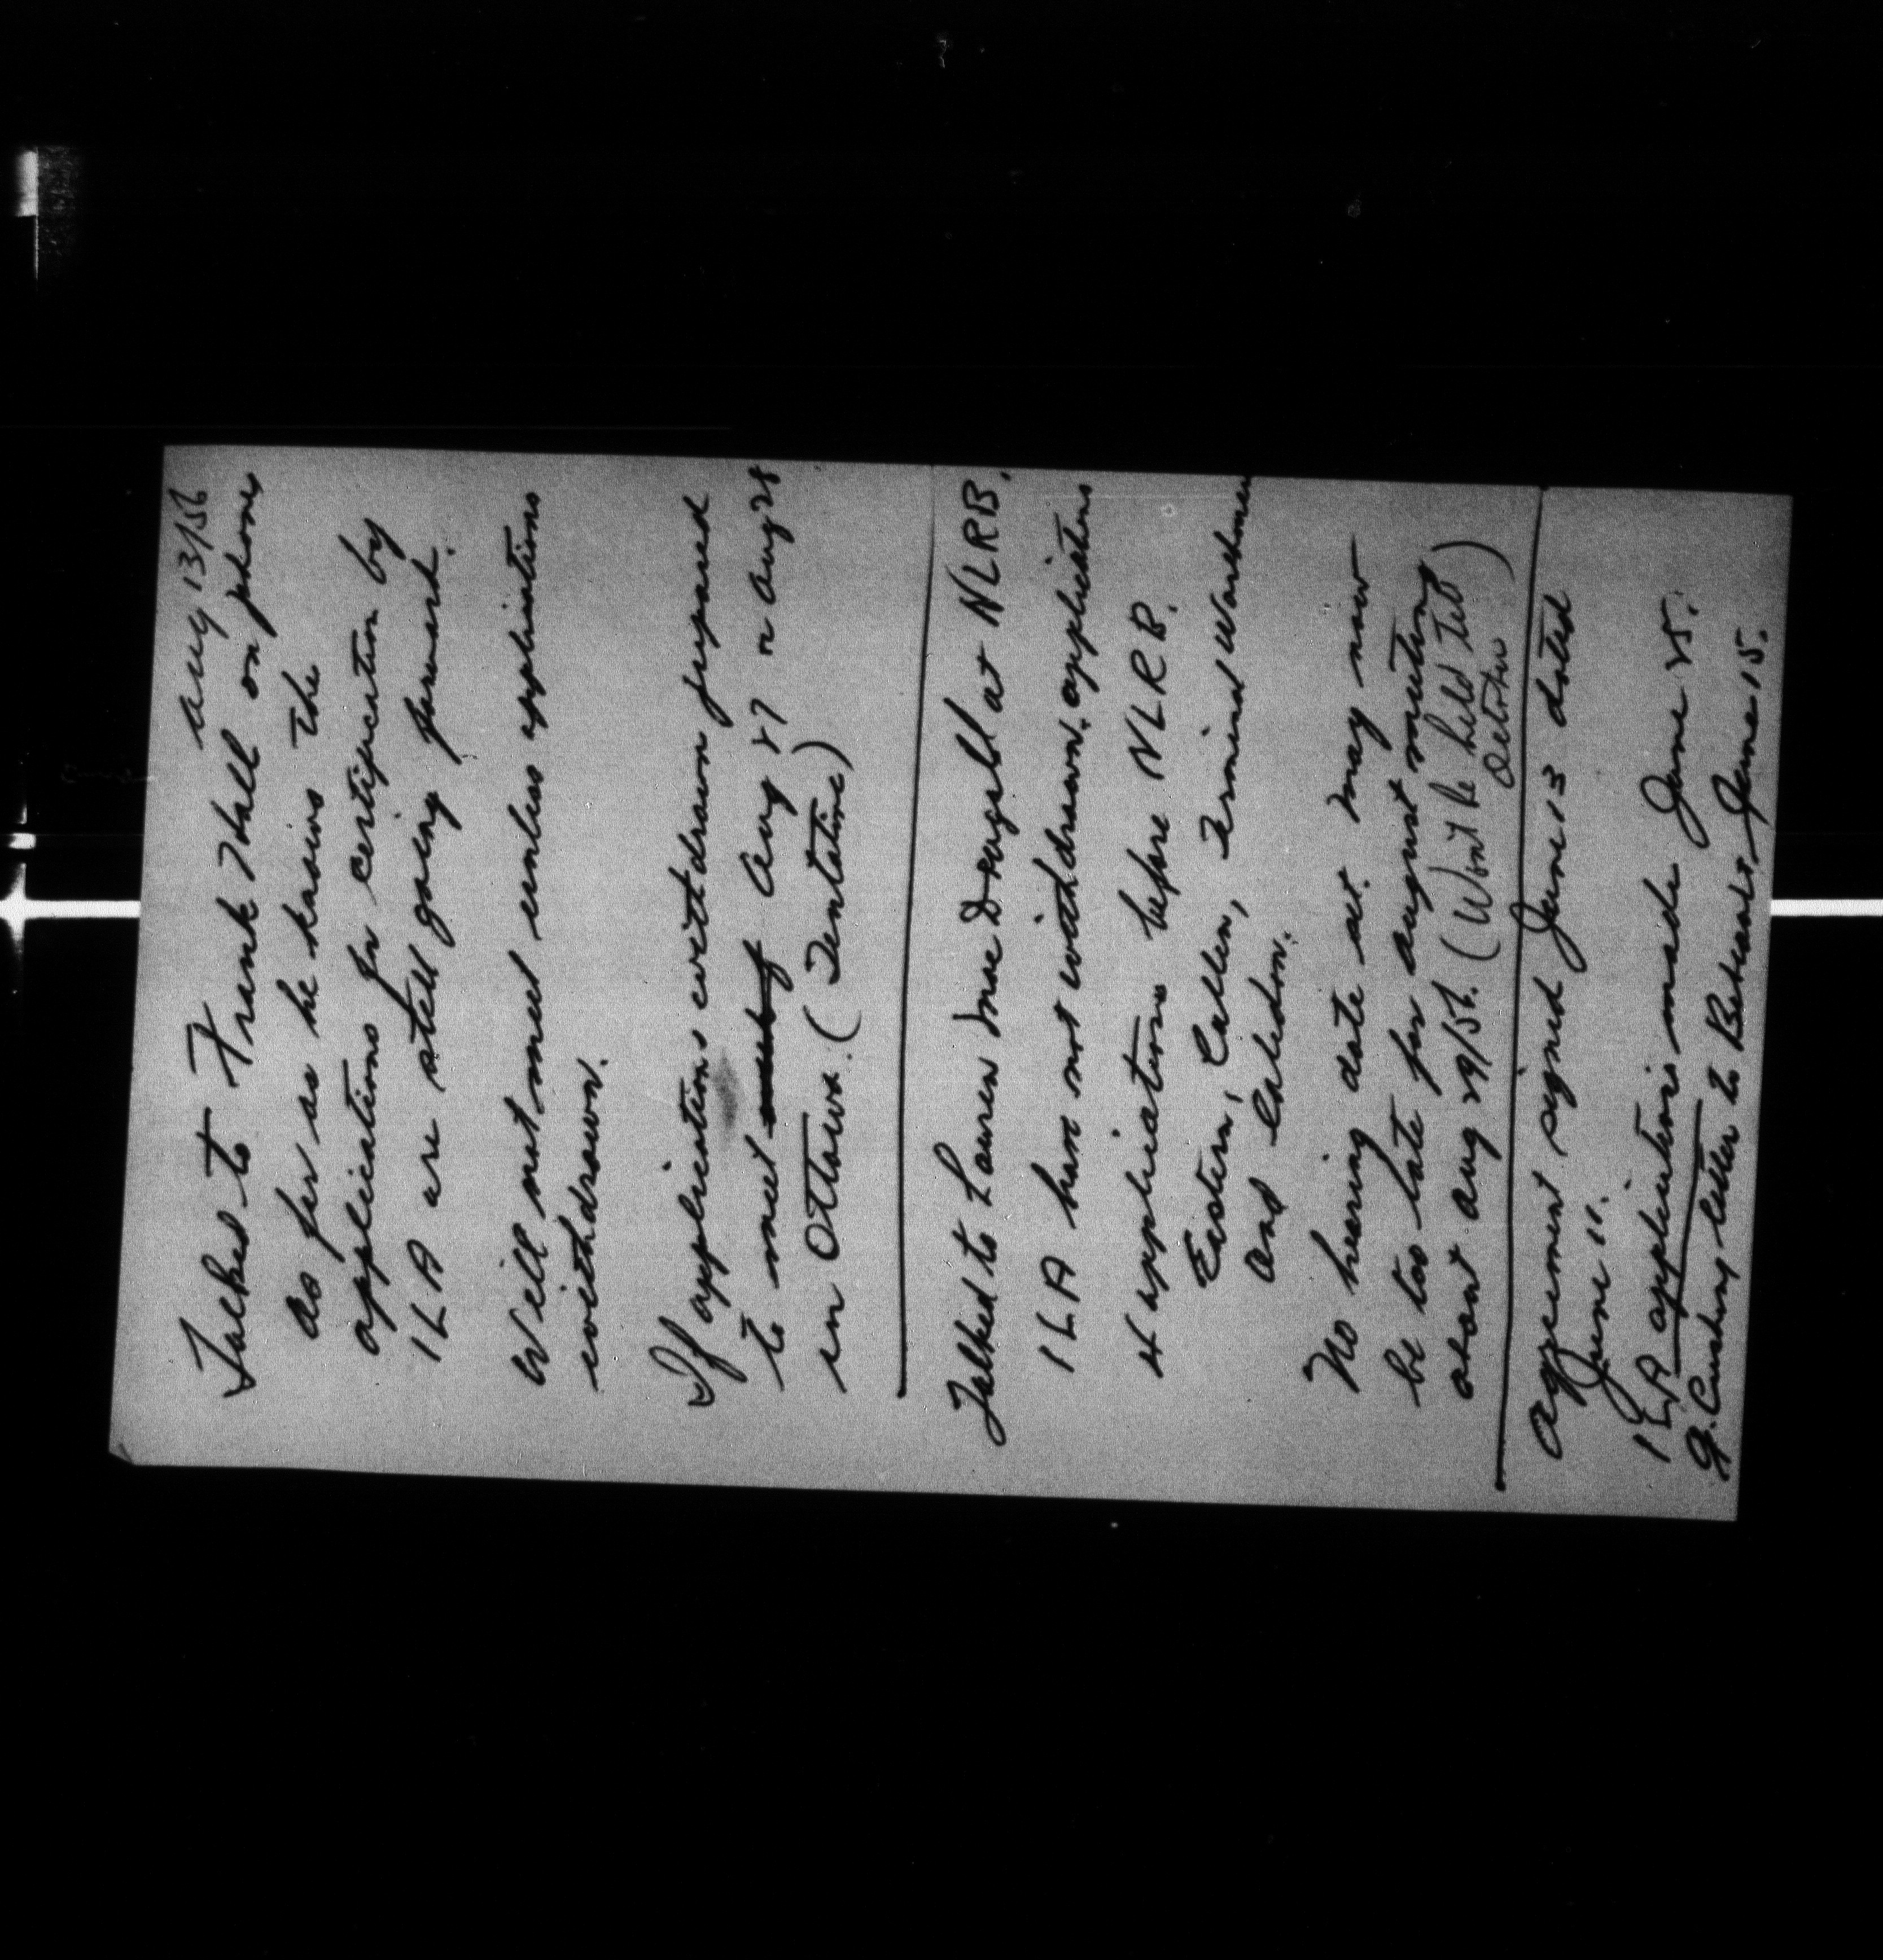 Aug 13/56
Talked to Frank Hall on phone
as far as he knows the
applications for certification by
ILA are still going forward.
Will not meet unless applications
withdrawn.
If applications withdrawn prepared
to meet Aug 27 or Aug 28
in Ottawa. (Tentative)
Talked to Lauren MacDougall at NLRB.
ILA have not withdrawn applications
4 applications before NLRB.
Eastern, Cullen, Terminal Warehouse
and Caledon.
No hearing date set. May now
be too late for August meeting
about Aug 29/56. (Won't be held till
October)
Agreement signed June 13 dated
June 11.
ILA applications made June 25.
G. Cushing letter to June 15.